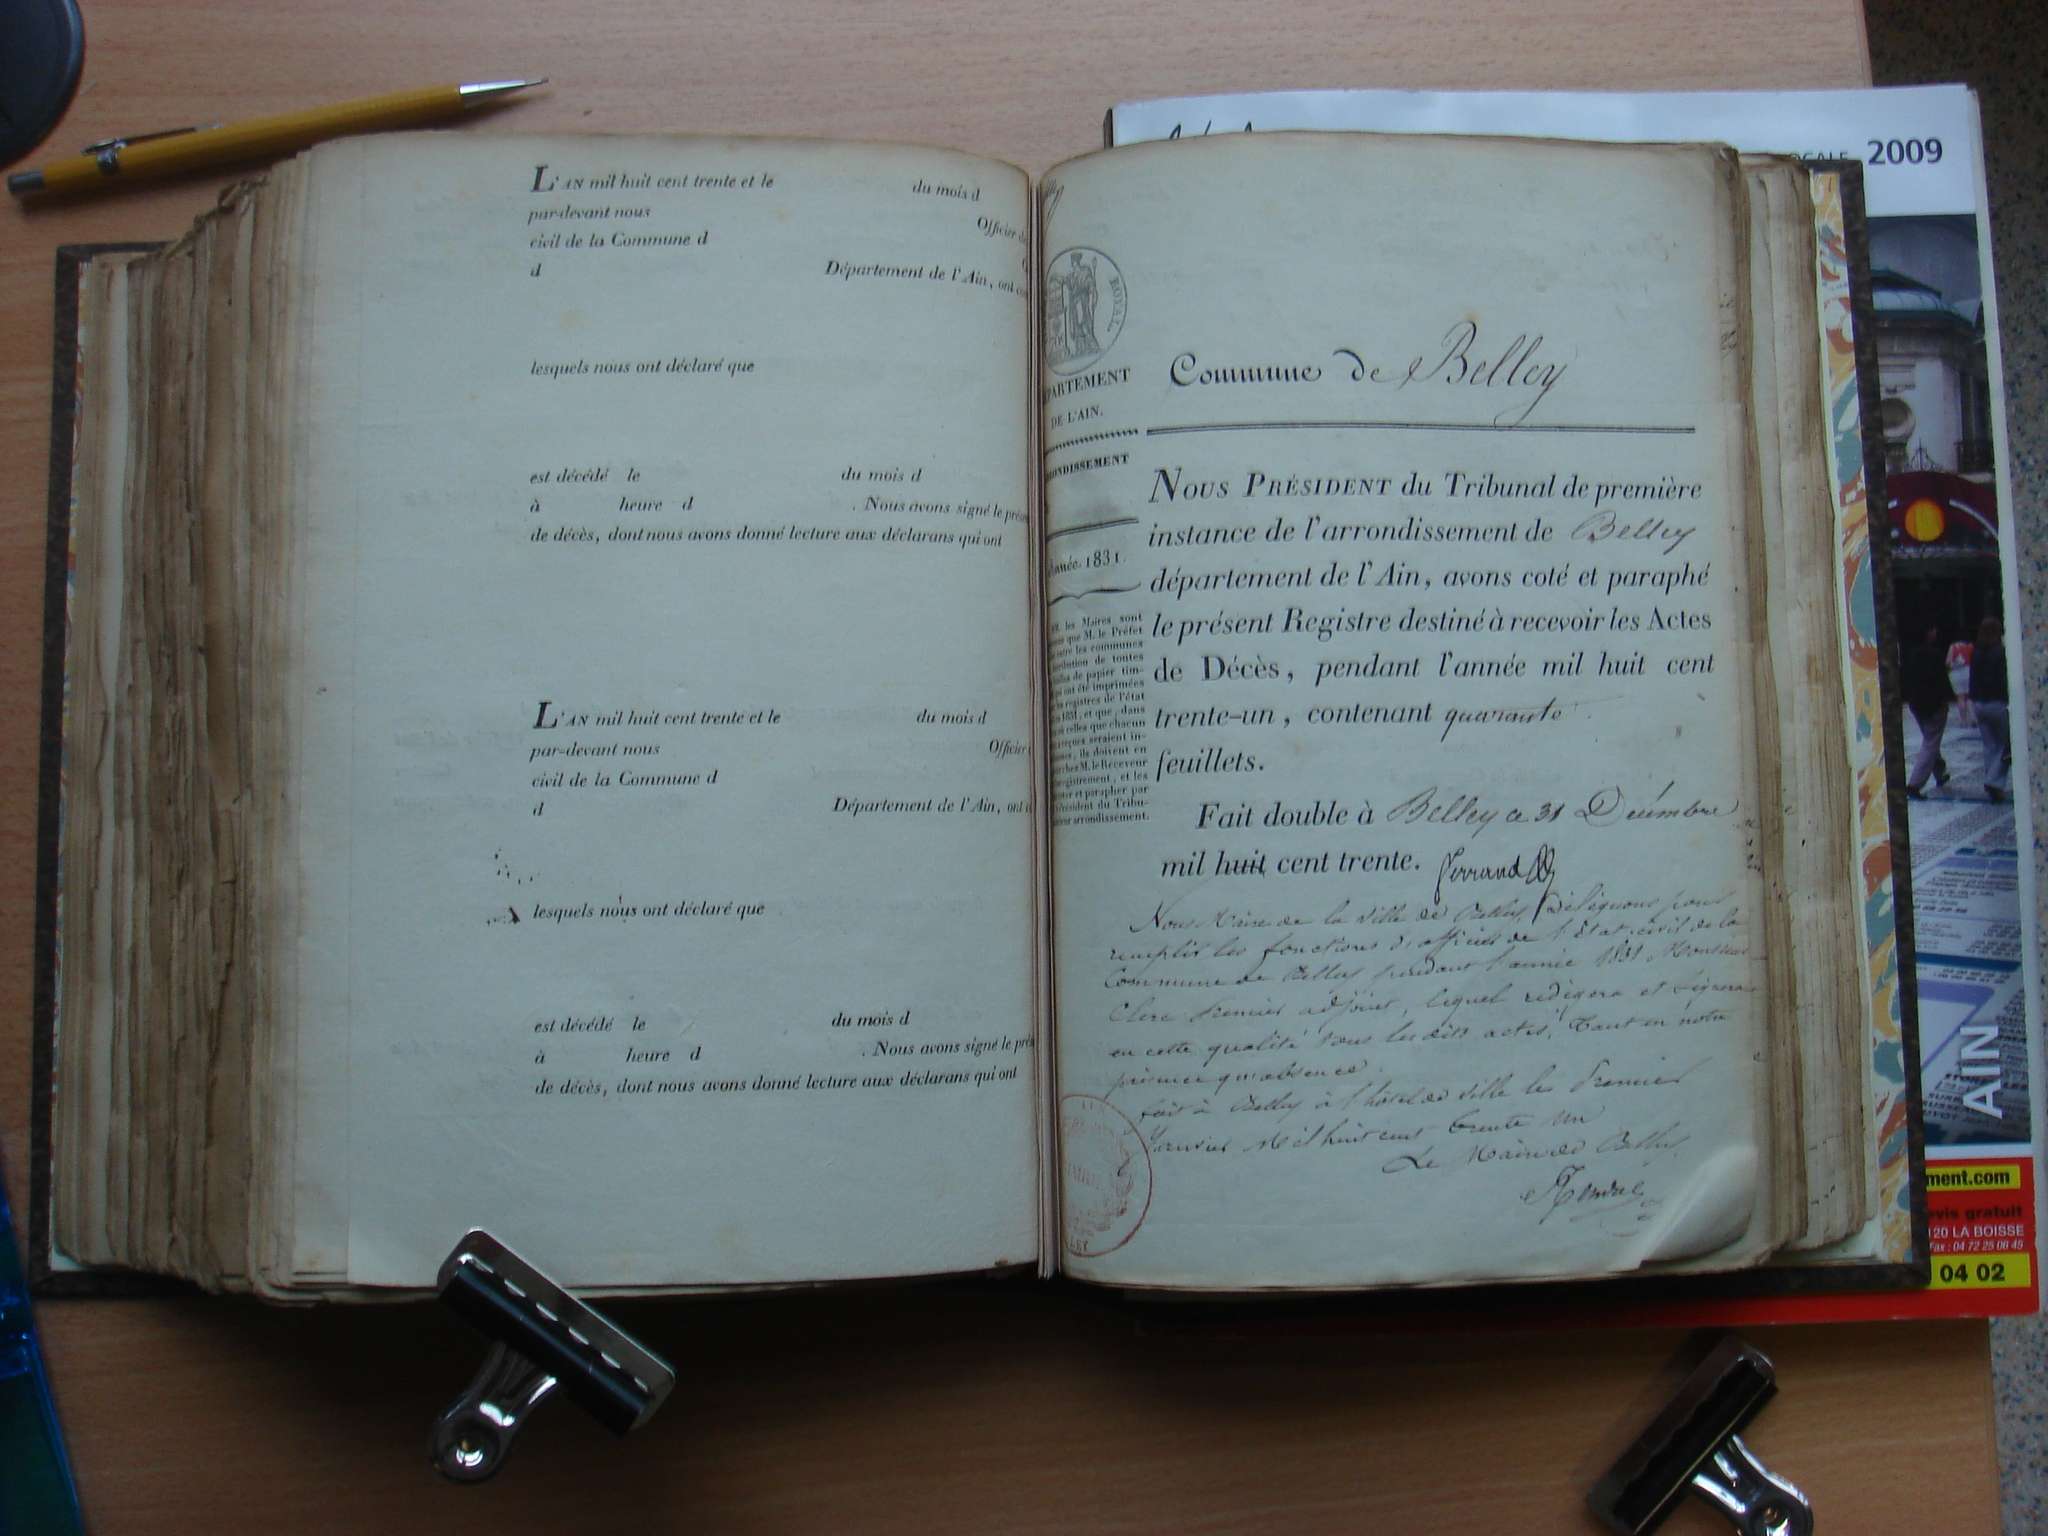 L'AN mil huit cent trente et le du mois d
par-devant nous Officier de
civil de la Commune d
d Département de l'Ain, ont
lesquels nous ont déclaré que
est décédé le du mois d
à heure d . Nous avons signé le prése
de décès, dont nous avons donné lecture aux déclarans qui ont
L'AN mil huit cent trente et le du mois d
par-devant nous Officier
civil de la Commune d
d Département de l'Ain, ont
lesquels nous ont déclaré que
est décédé le du mois d
à heure d . Nous avons signé le prés
de décès, dont nous avons donné lecture aux déclarans qui ont
ROYAL.
PARTEMENT
DE L'AIN.
ONDISSEMENT
Année 1831.
les Maires sont
que M. le Préfet
les communes
de toutes
de papier tim-
ont été imprimées
registres de l'état
1831, et que, dans
celles que chacun
seraient in-
ils doivent en
M. le Receveur
registrement, et les
et parapher par
président du Tribu-
arrondissement.
Commune de Belley
NOUS PRÉSIDENT du Tribunal de première
instance de l'arrondissement de Belley
département de l'Ain, avons coté et paraphé
le présent Registre destiné à recevoir les Actes
de Décès, pendant l'année mil huit cent
trente-un, contenant quarante
feuillets.
Fait double à Belley ce 31 Décembre
mil huit cent trente. Ferrand
Nous Maire de la ville de Belley, Déléguons pour
remplir les fonctions d'officier de l'Etat civil de la
Commune de Belley pendant l'année 1831 Monsieur
Clerc Premier adjoint, lequel rédigera et signera
en cette qualité tous les dits actes, tant en notre
présence qu'absence.
fait à Belley à l'hôtel de ville le Premier
Janvier Mil huit cent trente un
Le Maire de Belley
2009
AIN
ment.com
devis gratuit
120 LA BOISSE
Fax : 04 72 25 06 45
04 02